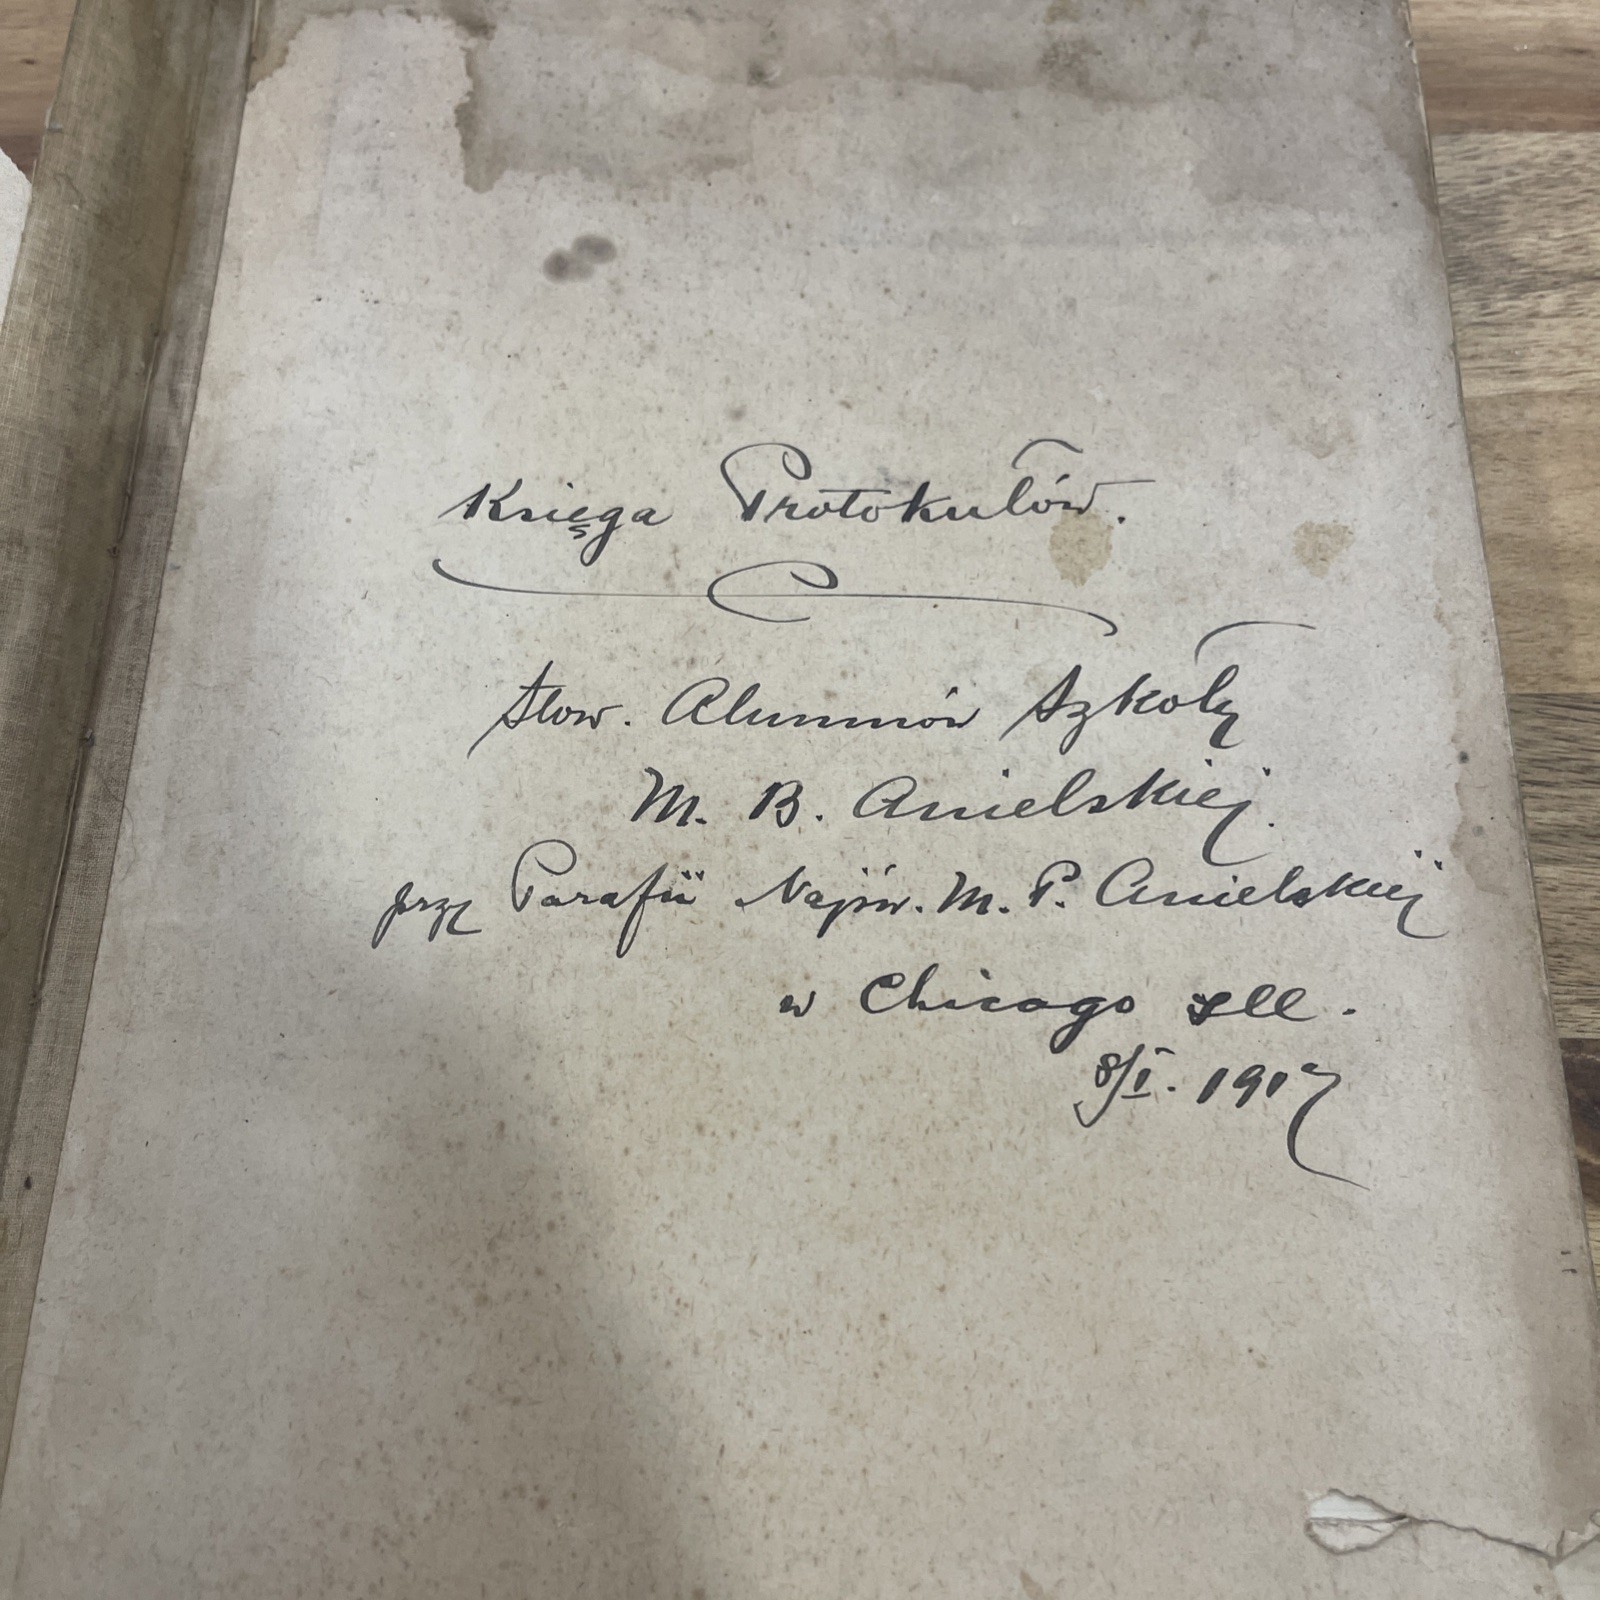 Księga Protokułów.
Stow. Alumnów Szkoły
M. B. Anielskiej.
przy Parafii Najśw. M. P. Anielskiej
w Chicago Ill.
8/I. 1917